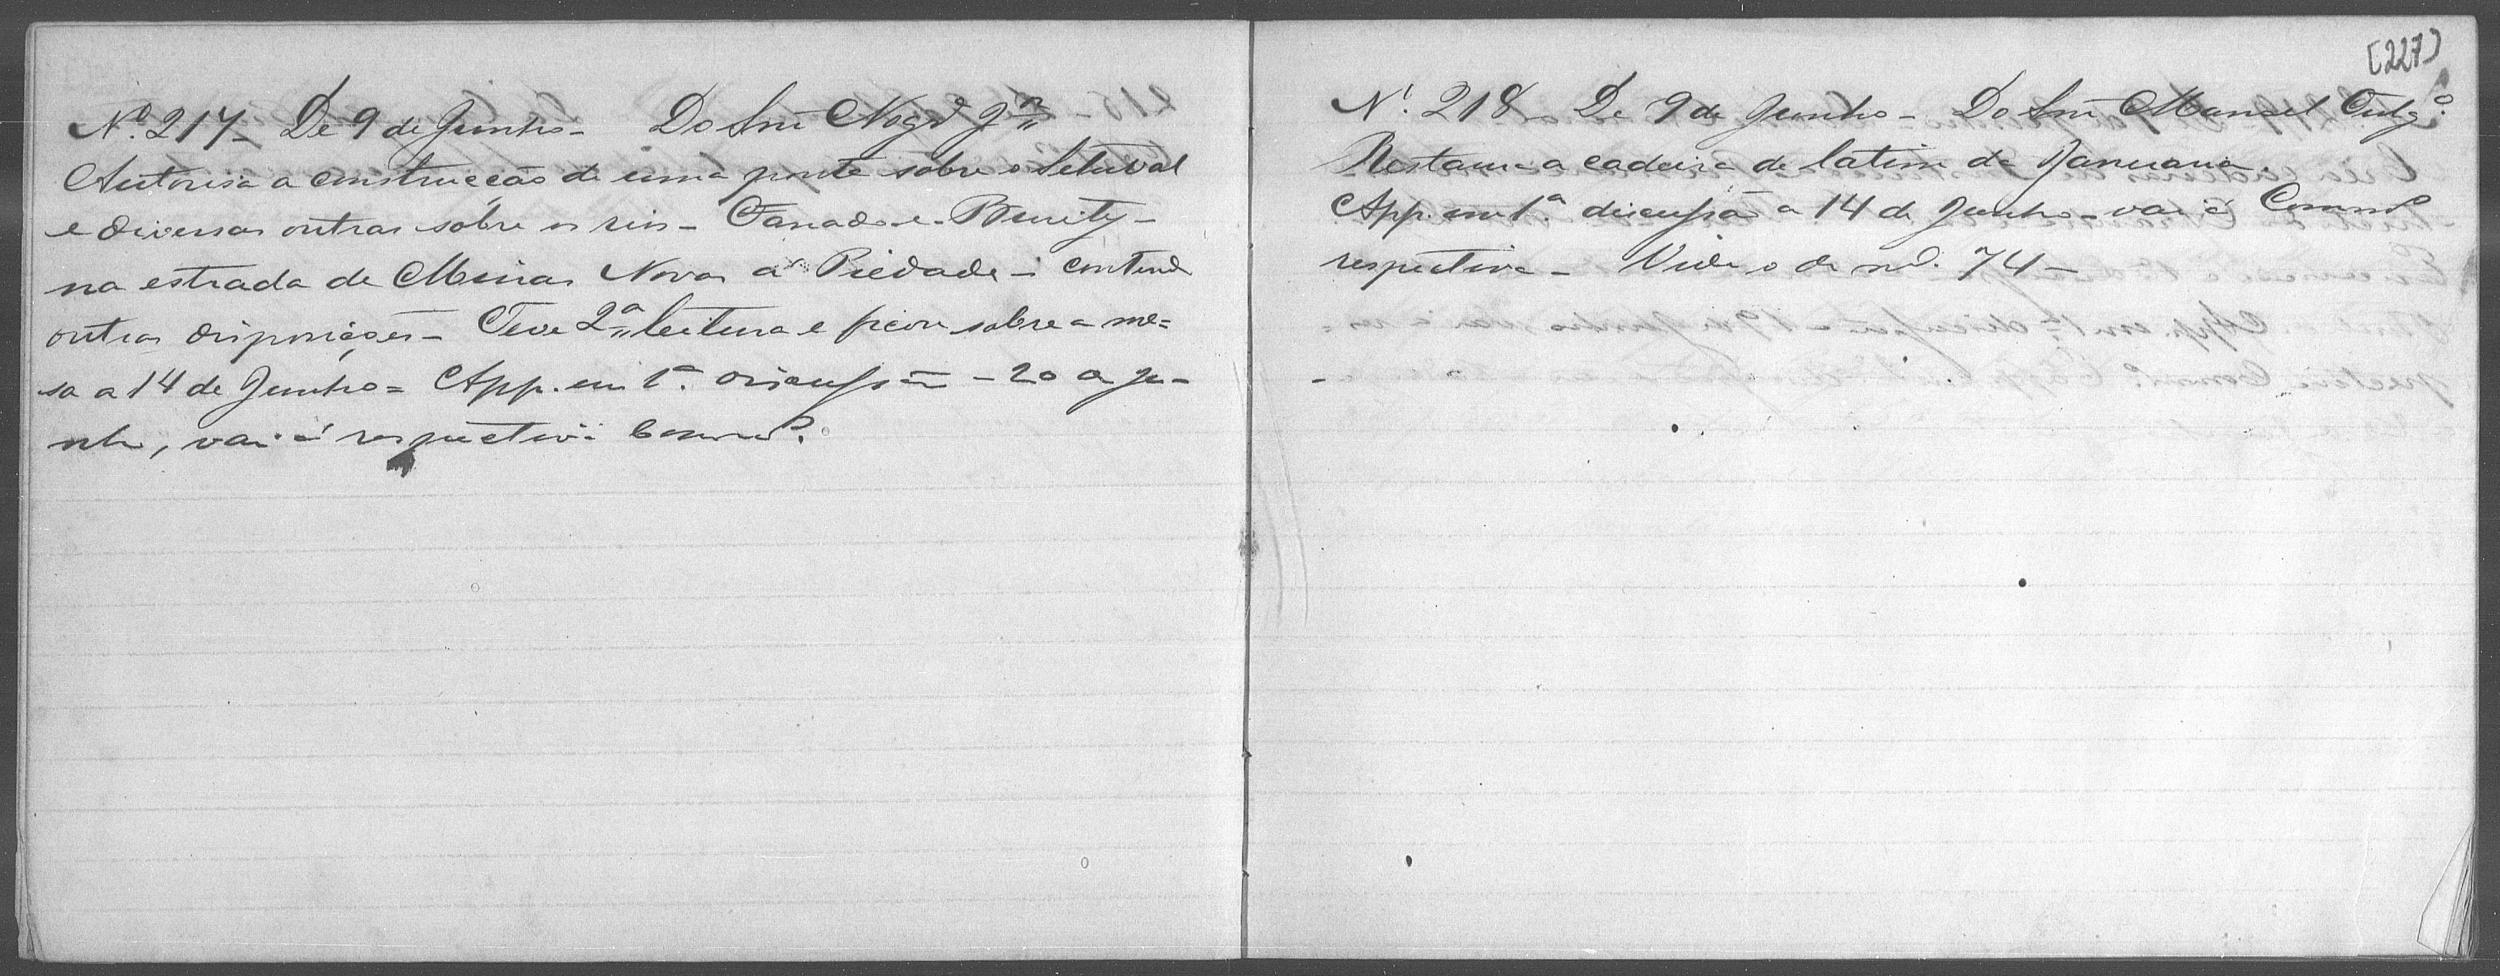 Nº 217 – De 9 de Junho – Do Snr Nogrª Jor
Autorisa a construcção de uma ponte sobre o Setuval
e diversas outras sobre os rios – Fanado e Burity –
na estrada de Minas Novas a Piedade – contend
outras disposições – Teve 2ª leitura e ficou sobre a me=
sa a 14 de Junho = App. em 1ª discussão – 20 de Ju–
nho, vai á respectiva Commm.
[227]
Nº 218 – De 9 de Junho – Do Snr Manoel Fulgº.
Restaura a cadeira de latim da Januaria.
App. em 1ª. discussão a 14 de Junho – vai á Comm
respectiva – Vide o de nº. 74 –